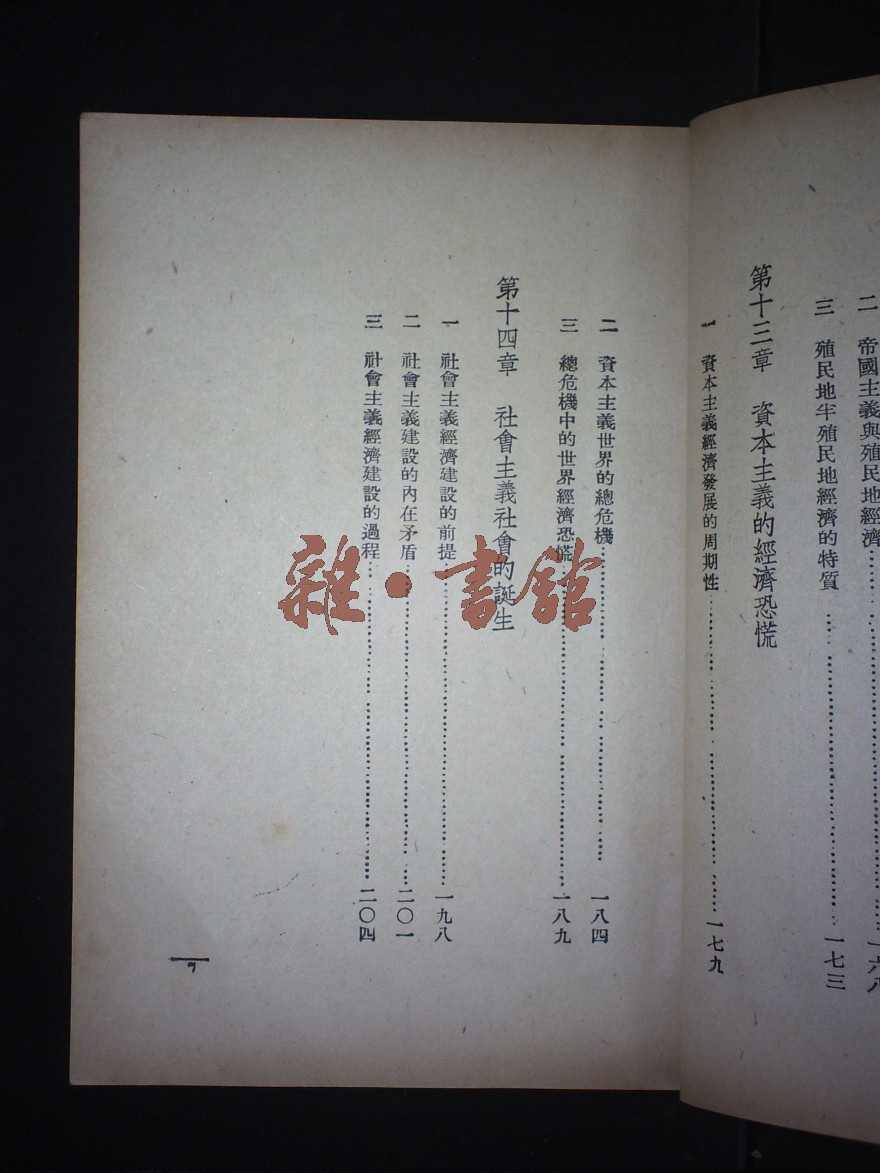 二 帝國主義與殖民地經濟……一六八
三 殖民地半殖民地經濟的特質……一七三
第十三章 資本主義的經濟恐慌
一 資本主義經濟發展的周期性……一七九
二 資本主義世界的總危機……一八四
三 總危機中的世界經濟恐慌……一八九
第十四章 社會主義社會的誕生
一 社會主義經濟建設的前提……一九八
二 社會主義建設的內在矛盾……二〇一
三 社會主義經濟建設的過程……二〇四
7
雜·書館